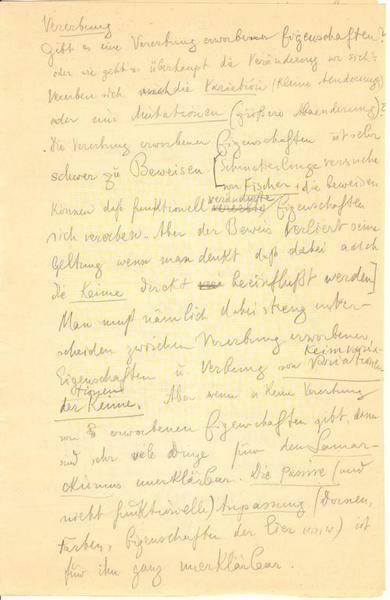 Vererbung
Gibt es eine Vererbung erworbener Eigenschaften?
oder wie geht es überhaupt die Veränderung vor sich?
Vererben sich auch die Variation (kleine Aenderung)
oder nur Mutationen (größere Abaenderung)?
Die Vererbung erworbener Eigenschaften ist sehr
schwer zu Beweisen [Schmetterlingsversuche
von Fischer, die beweisen
können daß funktionell veränderte Eigenschaften
sich vererben. Aber der Beweis verliert seine
Geltung wenn man denkt daß dabei auch
die Keime direkt beeinflußt werden]
Man muß nämlich dabei streng unter-
scheiden zwischen Vererbung erworbener
Eigenschaften u Vererbung von Keimvaria-
tionen
der Keime. Aber wenn es keine Vererbung
von erworbenen Eigenschaften gibt, dann
sind sehr viele Dinge für den Lamar-
ckismus unerklärbar. Die passive (und
nicht funktionelle) Anpassung (Dornen,
Farben, Eigenschaften der Eier usw) ist
für ihn ganz unerklärbar.